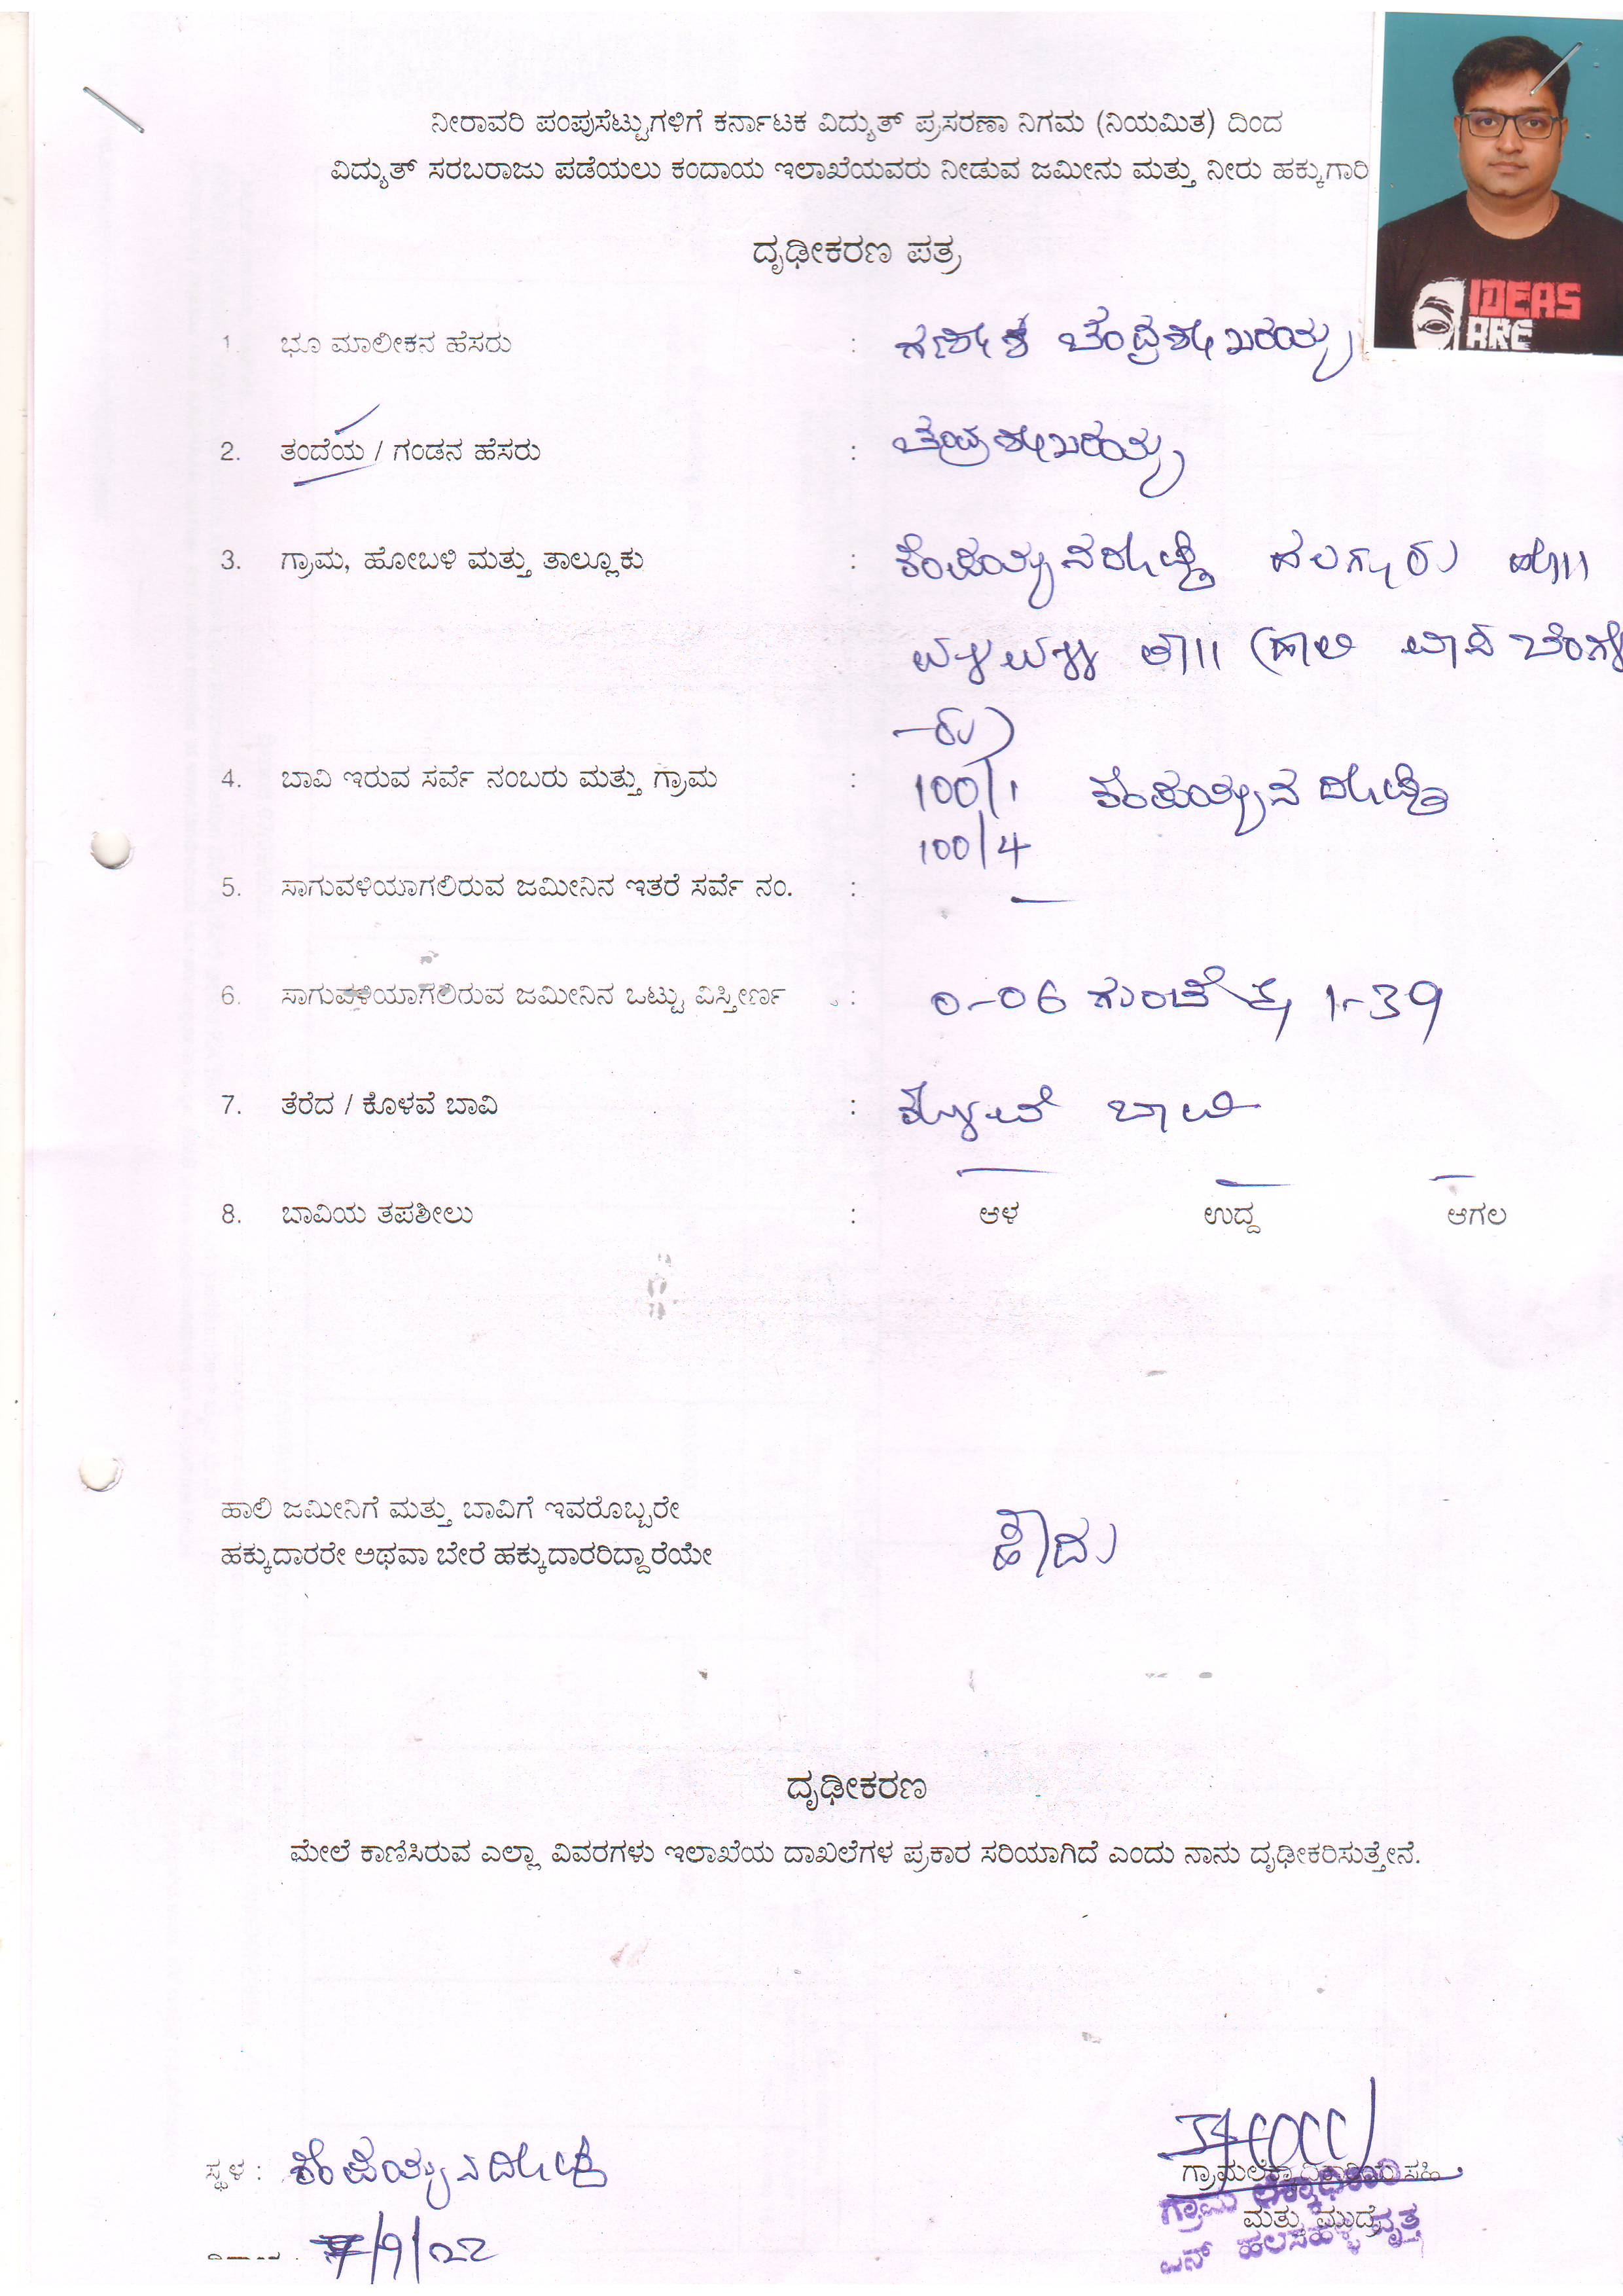 ನೀರಾವರಿ ಪಂಪುಸೆಟ್ಟುಗಳಿಗೆ ಕರ್ನಾಟಕ ವಿದ್ಯುತ್ ಪ್ರಸರಣಾ ನಿಗಮ (ನಿಯಮಿತ) ದಿಂದ
ವಿದ್ಯುತ್ ಸರಬರಾಜು ಪಡೆಯಲು ಕಂದಾಯ ಇಲಾಖೆಯವರು ನೀಡುವ ಜಮೀನು ಮತ್ತು ನೀರು ಹಕ್ಕುಗಾರಿ
ದೃಢೀಕರಣ ಪತ್ರ
IDEAS
ARE
1. ಭೂ ಮಾಲೀಕನ ಹೆಸರು : ಗಣೇಶ ಚಂದ್ರಶೇಖರಯ್ಯ
2. ತಂದೆಯ / ಗಂಡನ ಹೆಸರು : ಚಂದ್ರಶೇಖರಯ್ಯ
3. ಗ್ರಾಮ, ಹೋಬಳಿ ಮತ್ತು ತಾಲ್ಲೂಕು : ಹಲಗೂರು ಹೋ||
ತಾ|| (ಹಾಲಿ ವಾಸ ಬೆಂಗಳೂ
-ರು)
4. ಬಾವಿ ಇರುವ ಸರ್ವೆ ನಂಬರು ಮತ್ತು ಗ್ರಾಮ : 100/1
100/4
5. ಸಾಗುವಳಿಯಾಗಲಿರುವ ಜಮೀನಿನ ಇತರೆ ಸರ್ವೆ ನಂ. : —
6. ಸಾಗುವಳಿಯಾಗಲಿರುವ ಜಮೀನಿನ ಒಟ್ಟು ವಿಸ್ತೀರ್ಣ : 0-06 ಗುಂಟೆ 1-39
7. ತೆರೆದ / ಕೊಳವೆ ಬಾವಿ : ಬಾವಿ
8. ಬಾವಿಯ ತಪಶೀಲು : ಆಳ ಉದ್ದ ಆಗಲ
ಹಾಲಿ ಜಮೀನಿಗೆ ಮತ್ತು ಬಾವಿಗೆ ಇವರೊಬ್ಬರೇ
ಹಕ್ಕುದಾರರೇ ಅಥವಾ ಬೇರೆ ಹಕ್ಕುದಾರರಿದ್ದಾರೆಯೇ ಹೌದು
ದೃಢೀಕರಣ
ಮೇಲೆ ಕಾಣಿಸಿರುವ ಎಲ್ಲಾ ವಿವರಗಳು ಇಲಾಖೆಯ ದಾಖಲೆಗಳ ಪ್ರಕಾರ ಸರಿಯಾಗಿದೆ ಎಂದು ನಾನು ದೃಢೀಕರಿಸುತ್ತೇನೆ.
ಸ್ಥಳ :
ಮತ್ತು ಮುದ್ರೆ
ಗ್ರಾಮ ಲೆಕ್ಕಾಧಿಕಾರಿ
7/9/22
ಎನ್ ಹಲಸಹಳ್ಳಿ ವೃತ್ತ